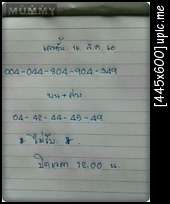 MUMMY
เลขชั้น 16 ส.ค. 60
004-044-304-904-349
บน+ล่าง
04-42-44-45-49
* ไม่รับ *
ปิดเวลา 12.00 น.
[445x600] upic.me